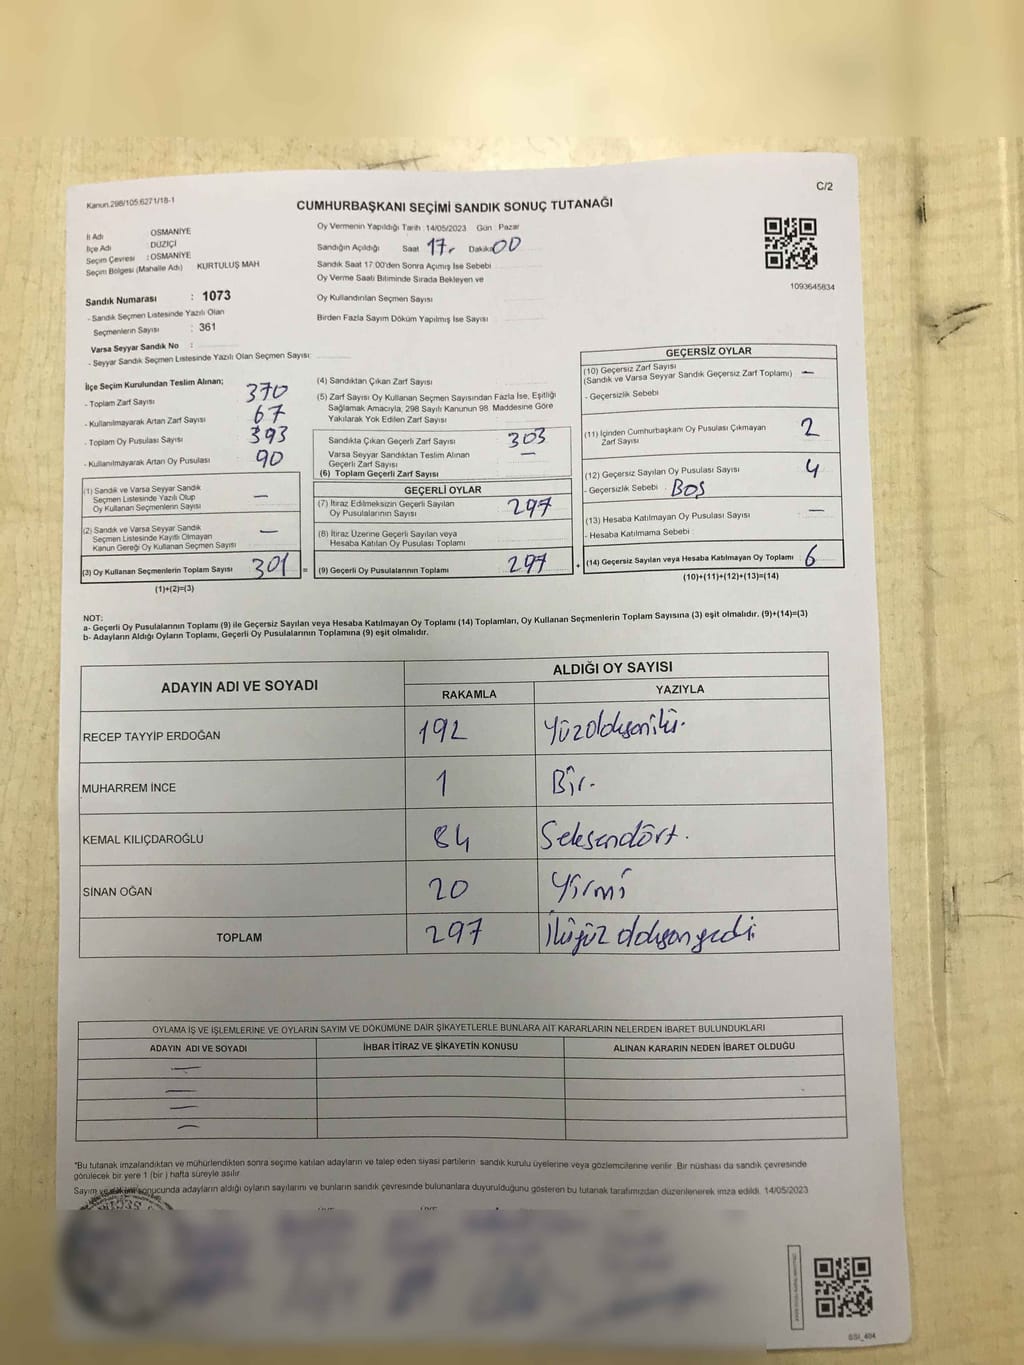 Kanun.298/105.6271/18-1
C/2
CUMHURBAŞKANI SEÇİMİ SANDIK SONUÇ TUTANAĞI
İl Adı OSMANİYE
İlçe Adı : DÜZİÇİ
Seçim Çevresi : OSMANİYE
Seçim Bölgesi (Mahalle Adı) KURTULUŞ MAH
Sandık Numarası : 1073
- Sandık Seçmen Listesinde Yazılı Olan
Seçmenlerin Sayısı : 361
Varsa Seyyar Sandık No :
- Seyyar Sandık Seçmen Listesinde Yazılı Olan Seçmen Sayısı:
Oy Vermenin Yapıldığı Tarih 14/05/2023 Gün Pazar
Sandığın Açıldığı Saat 17 Dakika 00
Sandık Saat 17:00'den Sonra Açımış İse Sebebi
Oy Verme Saati Bitiminde Sırada Bekleyen ve
Oy Kullandırılan Seçmen Sayısı
Birden Fazla Sayım Döküm Yapılmış İse Sayısı
1093645834
İlçe Seçim Kurulundan Teslim Alınan;
- Toplam Zarf Sayısı 370
- Kullanılmayarak Artan Zarf Sayısı 67
- Toplam Oy Pusulası Sayısı 393
- Kullanılmayarak Artan Oy Pusulası 90
(1) Sandık ve Varsa Seyyar Sandık
Seçmen Listesinde Yazılı Olup
Oy Kullanan Seçmenlerin Sayısı —
(2) Sandık ve Varsa Seyyar Sandık
Seçmen Listesinde Kayıtlı Olmayan
Kanun Gereği Oy Kullanan Seçmen Sayısı —
(3) Oy Kullanan Seçmenlerin Toplam Sayısı 301 =
(1)+(2)=(3)
(4) Sandıktan Çıkan Zarf Sayısı
(5) Zarf Sayısı Oy Kullanan Seçmen Sayısından Fazla İse, Eşitliği
Sağlamak Amacıyla, 298 Sayılı Kanunun 98. Maddesine Göre
Yakılarak Yok Edilen Zarf Sayısı
Sandıkta Çıkan Geçerli Zarf Sayısı 303
Varsa Seyyar Sandıktan Teslim Alınan
Geçerli Zarf Sayısı —
(6) Toplam Geçerli Zarf Sayısı
GEÇERLİ OYLAR
(7) İtiraz Edilmeksizin Geçerli Sayılan
Oy Pusulalarının Sayısı 297
(8) İtiraz Üzerine Geçerli Sayılan veya
Hesaba Katılan Oy Pusulası Toplamı
(9) Geçerli Oy Pusulalarının Toplamı 297 +
GEÇERSİZ OYLAR
(10) Geçersiz Zarf Sayısı
(Sandık ve Varsa Seyyar Sandık Geçersiz Zarf Toplamı) —
- Geçersizlik Sebebi
(11) İçinden Cumhurbaşkanı Oy Pusulası Çıkmayan
Zarf Sayısı 2
(12) Geçersiz Sayılan Oy Pusulası Sayısı 4
- Geçersizlik Sebebi : BOŞ
(13) Hesaba Katılmayan Oy Pusulası Sayısı —
- Hesaba Katılmama Sebebi :
(14) Geçersiz Sayılan veya Hesaba Katılmayan Oy Toplamı 6
(10)+(11)+(12)+(13)=(14)
NOT:
a- Geçerli Oy Pusulalarının Toplamı (9) ile Geçersiz Sayılan veya Hesaba Katılmayan Oy Toplamı (14) Toplamları, Oy Kullanan Seçmenlerin Toplam Sayısına (3) eşit olmalıdır. (9)+(14)=(3)
b- Adayların Aldığı Oyların Toplamı, Geçerli Oy Pusulalarının Toplamına (9) eşit olmalıdır.
ADAYIN ADI VE SOYADI
ALDIĞI OY SAYISI
RAKAMLA YAZIYLA
RECEP TAYYİP ERDOĞAN 192 Yüzdoksaniki.
MUHARREM İNCE 1 Bir.
KEMAL KILIÇDAROĞLU 84 Seksendört.
SİNAN OĞAN 20 Yirmi
TOPLAM 297 İkiyüz doksanyedi
OYLAMA İŞ VE İŞLEMLERİNE VE OYLARIN SAYIM VE DÖKÜMÜNE DAİR ŞİKAYETLERLE BUNLARA AİT KARARLARIN NELERDEN İBARET BULUNDUKLARI
ADAYIN ADI VE SOYADI İHBAR İTİRAZ VE ŞİKAYETİN KONUSU ALINAN KARARIN NEDEN İBARET OLDUĞU
—
—
—
—
*Bu tutanak imzalandıktan ve mühürlendikten sonra seçime katılan adayların ve talep eden siyasi partilerin sandık kurulu üyelerine veya gözlemcilerine verilir. Bir nüshası da sandık çevresinde
görülecek bir yere 1 (bir ) hafta süreyle asılır
Sayım ve döküm sonucunda adayların aldığı oyların sayılarını ve bunların sandık çevresinde bulunanlara duyurulduğunu gösteren bu tutanak tarafımızdan düzenlenerek imza edildi. 14/05/2023